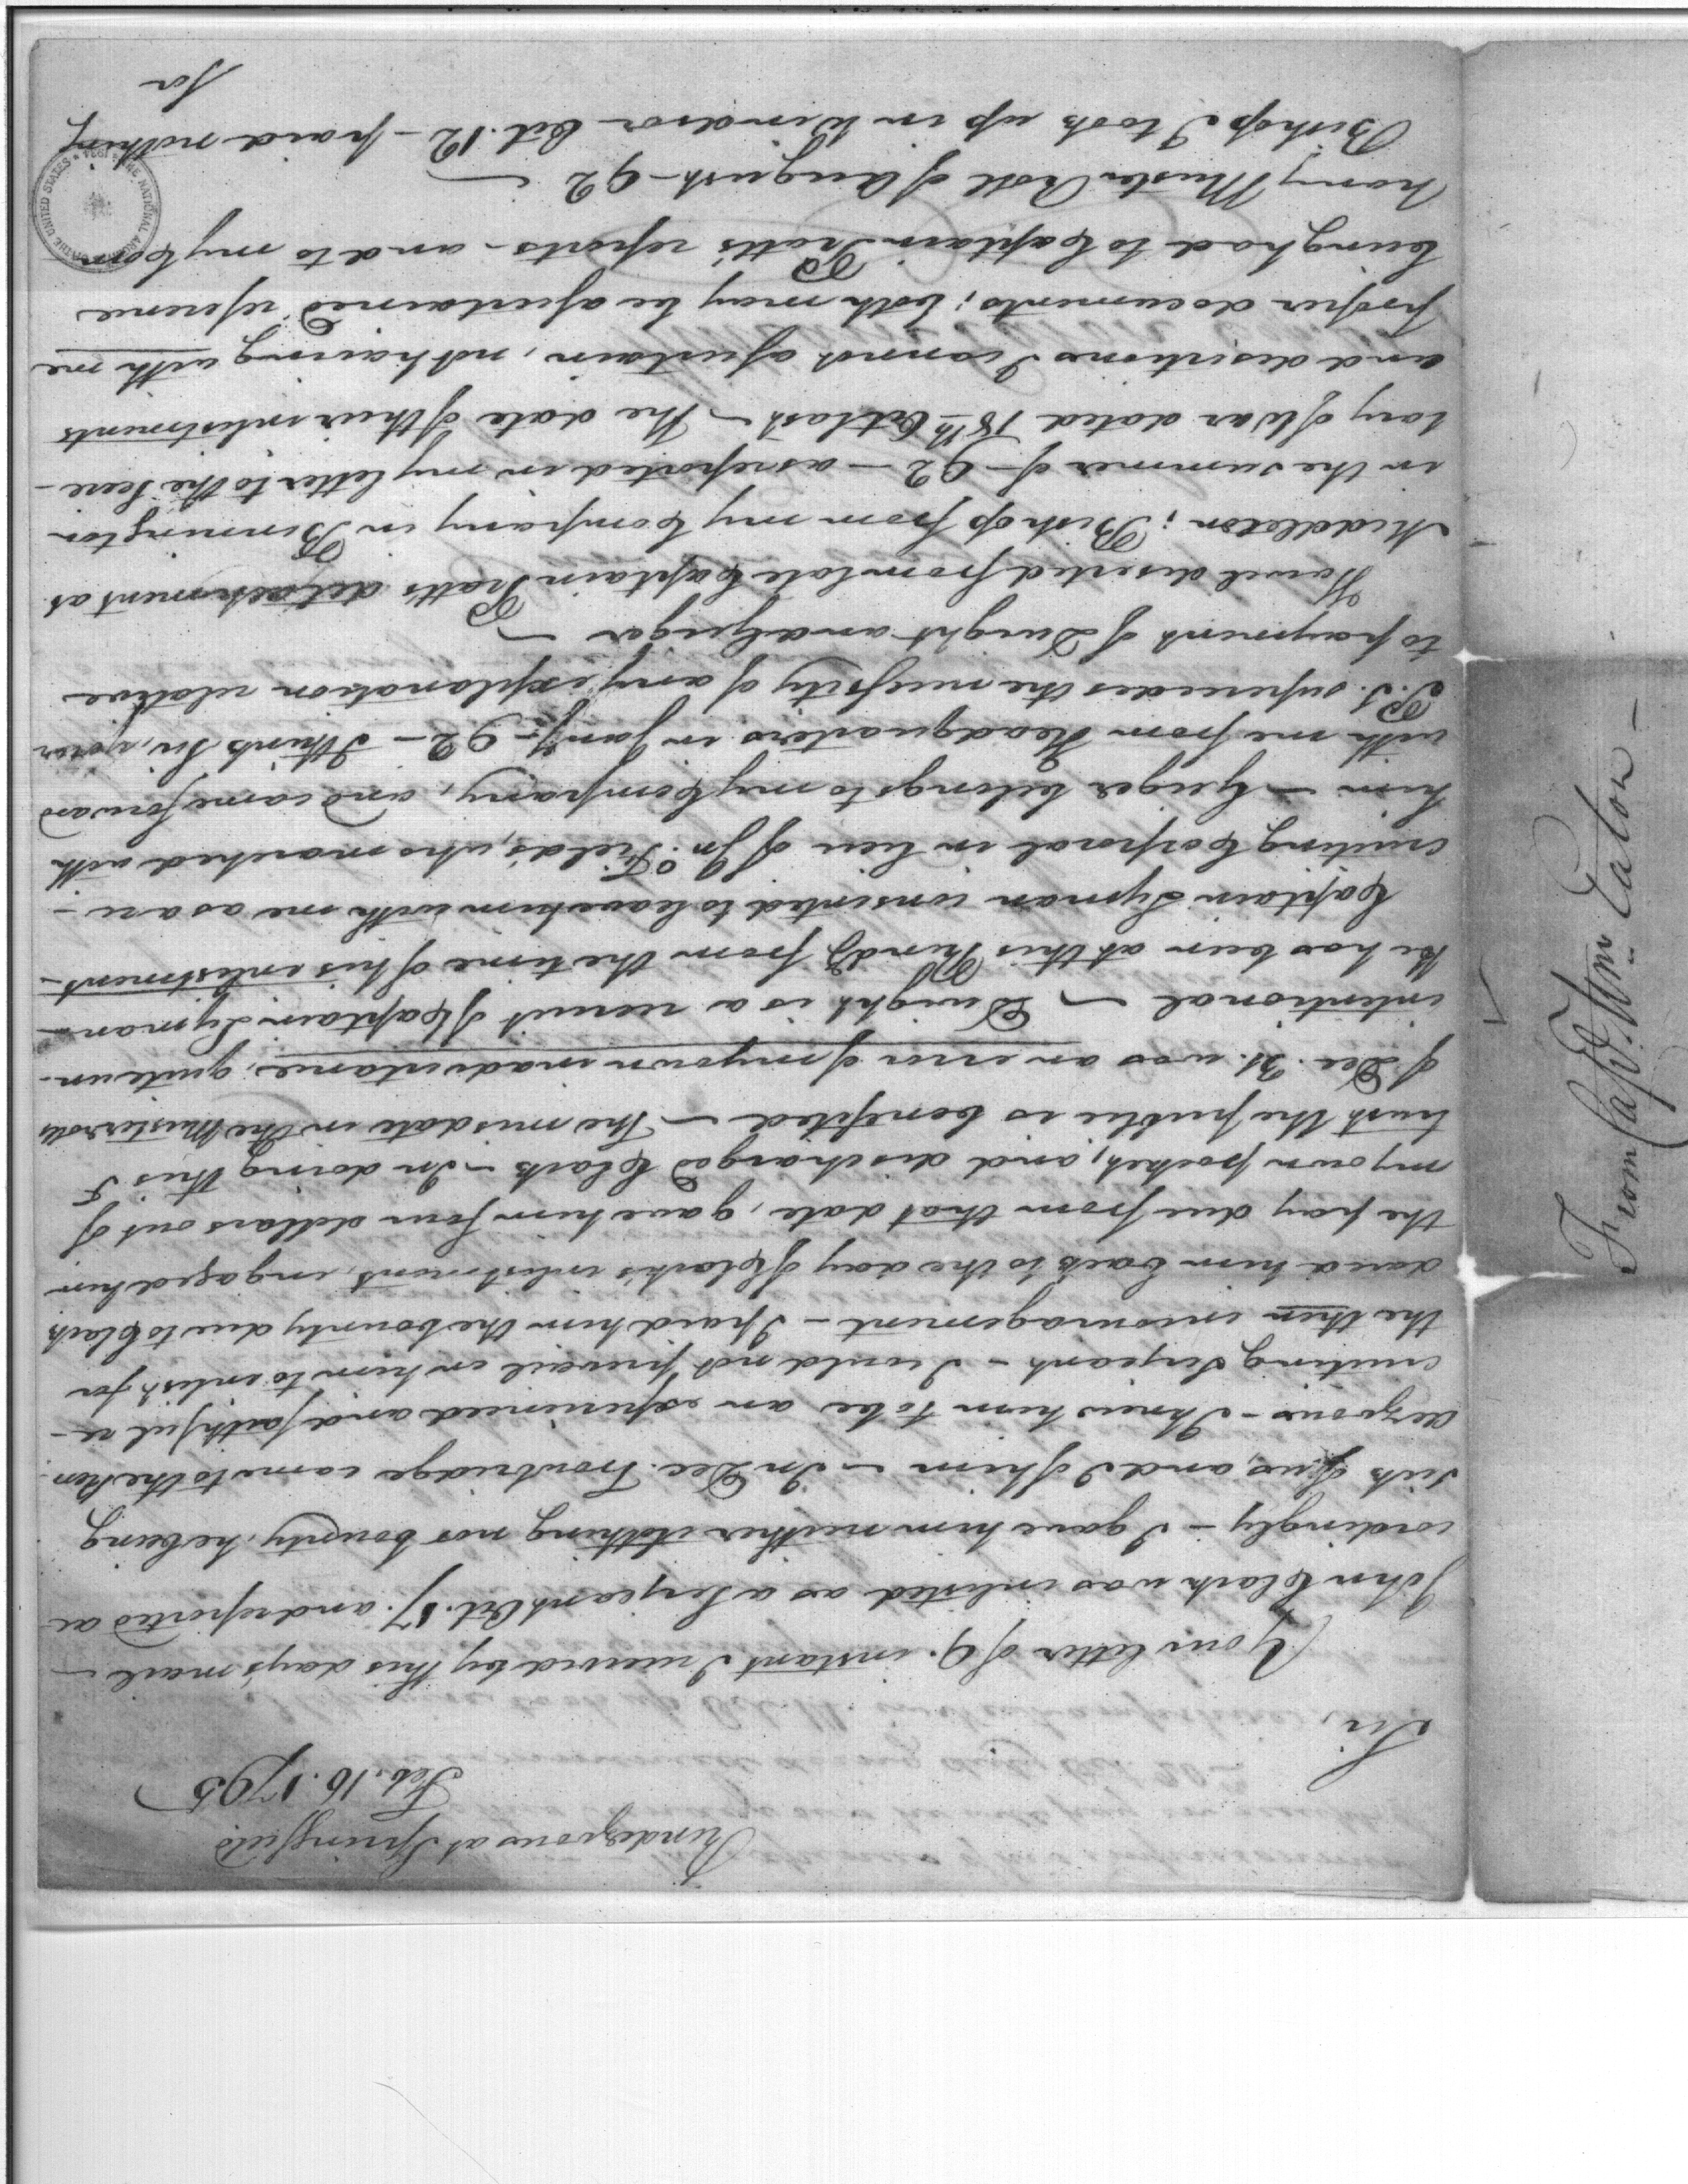 Rendezvous at Springfield
Feb. 16. 1795
Sir,
Your letter of 9. instant I received by this day's mail —
John Clark was inlisted as a Serjeant Oct. 17. and reported ac
cordingly — I gave him neither clothing nor bounty, he being
sick of us, and I of him — In Dec. Trowbridge came to the Ren
dezvous — I knew him to be an experienced and faithful re-
cruiting Serjeant — I could not prevail on him to inlist for
the then incouragement — I paid him the bounty due to Clark
dated him back to the day of Clark's inlistment, engaged him
the pay due from that date, gave him four dollars out of
my own pocket, and discharged Clark — In doing this I
trust the public is benefited — The misdate in the Muster rolls
of Dec. 31. was an error of my own inadvertance, quite un-
intentional — Dwight is a recruit of Captain Lyman —
He has been at this Rendz. from the time of his inlistment —
Captain Lyman consented to leave him with me as a re-
cruiting Corporal in lieu of Jno. Fields, who marched with
him — Geiger belongs to my Company, and came forward
with me from Headquarters in Jany. — 92 — I think Sir, your
P.S. supercedes the necessity of any explanation relative
to payment of Dwight and Geiger —
deserted from late Captain Pratt's detachment at
Middleton; Bishop from my Company in Bennington
in the summer of — 92 — as reported in my letter to the Secre-
tary of War dated 18th Oct. last — The date of their inlistments
and desertions I cannot ascertain, not having with me
proper documents; both may be ascertained reference
being had to Captain Pratt's reports — and to my Com
pany Muster Roll of August — 92 —
Bishop I took up in Windsor Oct. 12 — paid nothing
for
From Capt. Wm. Eaton —
THE NATIONAL ARCHIVES OF THE UNITED STATES ★ 1934 ★